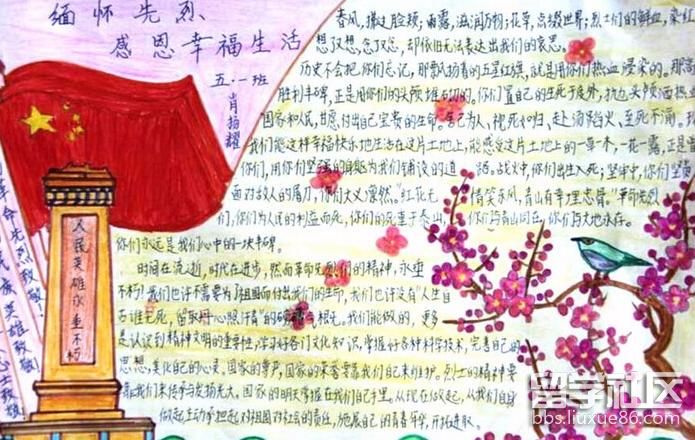 缅怀先烈
感恩幸福生活
五·一班
肖扬耀
春风,拂过脸颊;雨露,滋润万物;花草,点缀世界;烈士们的鲜血,染红
想又想,念又念,却依旧无法表达出我们的哀思。
历史不会把你们忘记,那飘扬着的五星红旗,就是用你们热血浸染的。那高
胜利丰碑,正是用你们的头颅堆砌的。你们置自己的生死于度外,抗也头颅洒热血
国家和人民,甘愿付出自己宝贵的生命。舍己为人、视死如归、赴汤蹈火、至死不渝。
我们能这样幸福快乐地生活在这片土地上,能感受这片土地上的一草一木,一花一露,正是
你们,用你们坚强的身躯为我们铺设的道路。战火中,你们出生入死;牢中,你们坚贞
面对敌人的屠刀,你们大义凛然。"红花无情笑东风,青山有幸埋忠骨。"革命先烈
们,你们为人民的利益而死,你们的死重于泰山,你们与青山同在,你们与大地永存。
你们永远是我们心中的一块丰碑。
时间在流逝,时代在进步,然而革命先烈们的精神,永垂
不朽!我们也许不需要为了祖国而付出我们的生命,我们也许没有"人生自
古谁无死,留取丹心照汗青"的
我们能做的,更多
是认识到精神文明的重要性,学习好各门文化知识,掌握好各种科学技术,完善自己的
思想,美化自己的心灵。国家的尊严,国家的荣誉靠我们自己来维护。烈士的精神要
靠我们来传承与发扬光大。国家的明天掌握在我们自己手里。从现在做起,从我们自身
做起,主动承担起对祖国对社会的责任,施展自己的青春年华,开拓进取。
人民英雄永垂不朽
革命先烈致敬!
民族英雄致敬!
士致敬!
留学社区
bbs.liuxue86.com